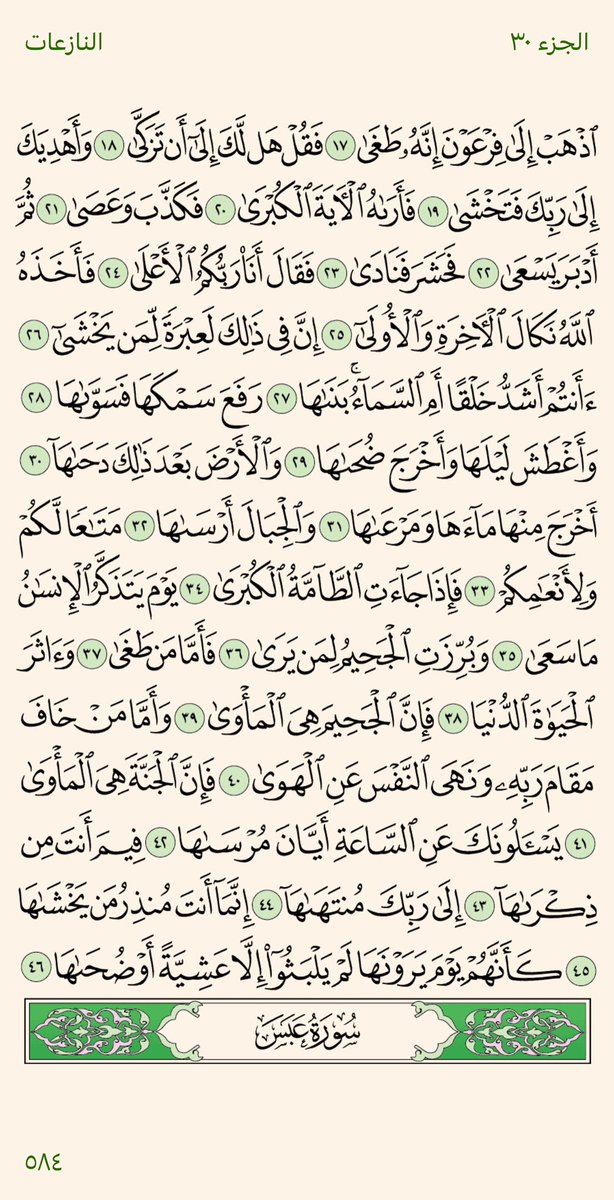 الجزء ٣٠
النازعات
ٱذۡهَبۡ إِلَىٰ فِرۡعَوۡنَ إِنَّهُۥ طَغَىٰ ١٧ فَقُلۡ هَل لَّكَ إِلَىٰٓ أَن تَزَكَّىٰ ١٨ وَأَهۡدِيَكَ
إِلَىٰ رَبِّكَ فَتَخۡشَىٰ ١٩ فَأَرَىٰهُ ٱلۡأٓيَةَ ٱلۡكُبۡرَىٰ ٢٠ فَكَذَّبَ وَعَصَىٰ ٢١ ثُمَّ
أَدۡبَرَ يَسۡعَىٰ ٢٢ فَحَشَرَ فَنَادَىٰ ٢٣ فَقَالَ أَنَا۠ رَبُّكُمُ ٱلۡأَعۡلَىٰ ٢٤ فَأَخَذَهُ
ٱللَّهُ نَكَالَ ٱلۡأٓخِرَةِ وَٱلۡأُولَىٰٓ ٢٥ إِنَّ فِي ذَٰلِكَ لَعِبۡرَةٗ لِّمَن يَخۡشَىٰٓ ٢٦
ءَأَنتُمۡ أَشَدُّ خَلۡقًا أَمِ ٱلسَّمَآءُۚ بَنَىٰهَا ٢٧ رَفَعَ سَمۡكَهَا فَسَوَّىٰهَا ٢٨
وَأَغۡطَشَ لَيۡلَهَا وَأَخۡرَجَ ضُحَىٰهَا ٢٩ وَٱلۡأَرۡضَ بَعۡدَ ذَٰلِكَ دَحَىٰهَآ ٣٠
أَخۡرَجَ مِنۡهَا مَآءَهَا وَمَرۡعَىٰهَا ٣١ وَٱلۡجِبَالَ أَرۡسَىٰهَا ٣٢ مَتَٰعٗا لَّكُمۡ
وَلِأَنۡعَٰمِكُمۡ ٣٣ فَإِذَا جَآءَتِ ٱلطَّآمَّةُ ٱلۡكُبۡرَىٰ ٣٤ يَوۡمَ يَتَذَكَّرُ ٱلۡإِنسَٰنُ
مَا سَعَىٰ ٣٥ وَبُرِّزَتِ ٱلۡجَحِيمُ لِمَن يَرَىٰ ٣٦ فَأَمَّا مَن طَغَىٰ ٣٧ وَءَاثَرَ
ٱلۡحَيَوٰةَ ٱلدُّنۡيَا ٣٨ فَإِنَّ ٱلۡجَحِيمَ هِيَ ٱلۡمَأۡوَىٰ ٣٩ وَأَمَّا مَنۡ خَافَ
مَقَامَ رَبِّهِۦ وَنَهَى ٱلنَّفۡسَ عَنِ ٱلۡهَوَىٰ ٤٠ فَإِنَّ ٱلۡجَنَّةَ هِيَ ٱلۡمَأۡوَىٰ
٤١ يَسۡـَٔلُونَكَ عَنِ ٱلسَّاعَةِ أَيَّانَ مُرۡسَىٰهَا ٤٢ فِيمَ أَنتَ مِن
ذِكۡرَىٰهَآ ٤٣ إِلَىٰ رَبِّكَ مُنتَهَىٰهَآ ٤٤ إِنَّمَآ أَنتَ مُنذِرُ مَن يَخۡشَىٰهَا
٤٥ كَأَنَّهُمۡ يَوۡمَ يَرَوۡنَهَا لَمۡ يَلۡبَثُوٓاْ إِلَّا عَشِيَّةً أَوۡ ضُحَىٰهَا ٤٦
سُورَةُ عَبَسَ
٥٨٤